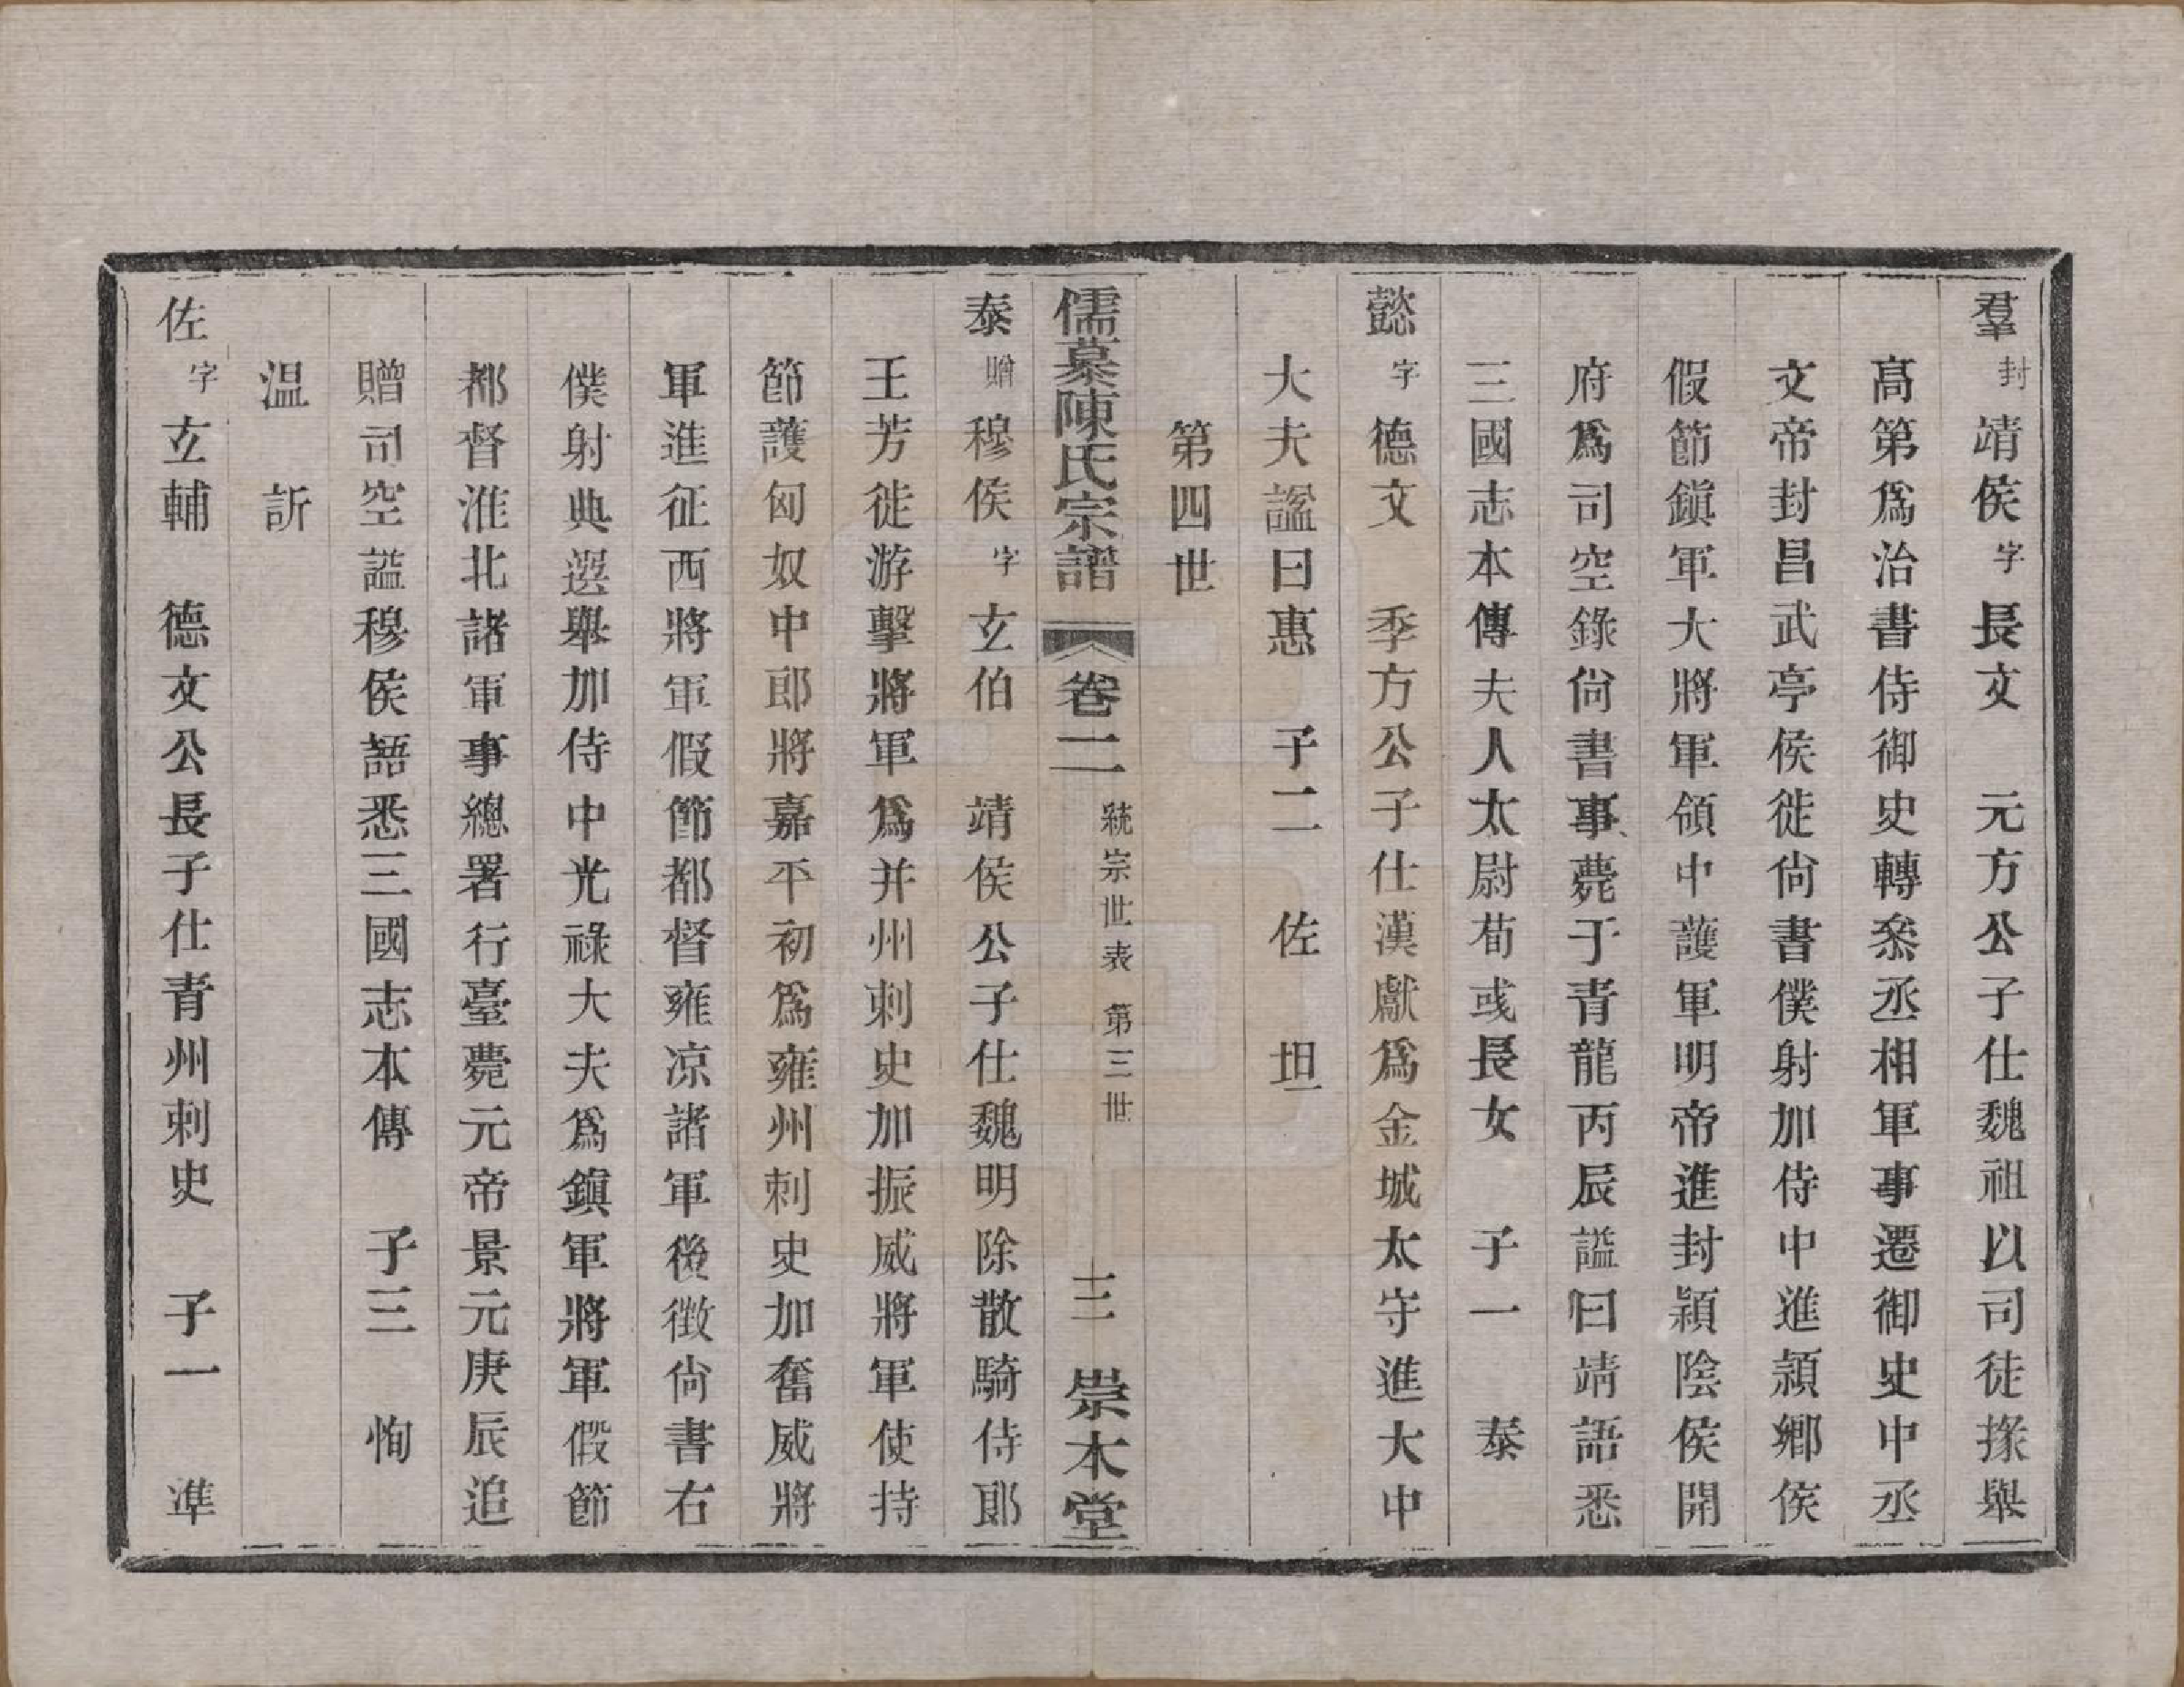 羣封靖侯字長文　元方公子仕魏祖以司徒掾舉
高第爲治書侍御史轉叅丞相軍事遷御史中丞
文帝封昌武亭侯徙尙書僕射加侍中進潁鄉侯
假節鎭軍大將軍領中護軍明帝進封潁陰侯開
府爲司空錄尙書事薨于青龍丙辰謚曰靖語悉
三國志本傳夫人太尉荀彧長女　子一　泰
懿字德文　季方公子仕漢獻爲金城太守進大中
大夫謚曰惠　子二　佐　坦
第四世
儒墓陳氏宗譜　卷二　統宗世表　第三世　三　崇本堂
泰贈穆侯字玄伯　靖侯公子仕魏明除散騎侍郎
王芳徙游擊將軍爲并州刺史加振威將軍使持
節護匈奴中郎將嘉平初爲雍州刺史加奮威將
軍進征西將軍假節都督雍凉諸軍後徵尙書右
僕射典選舉加侍中光祿大夫爲鎭軍將軍假節
都督淮北諸軍事總署行臺薨元帝景元庚辰追
贈司空謚穆侯語悉三國志本傳　子三　恂
温　訢
佐字玄輔　德文公長子仕青州刺史　子一　準